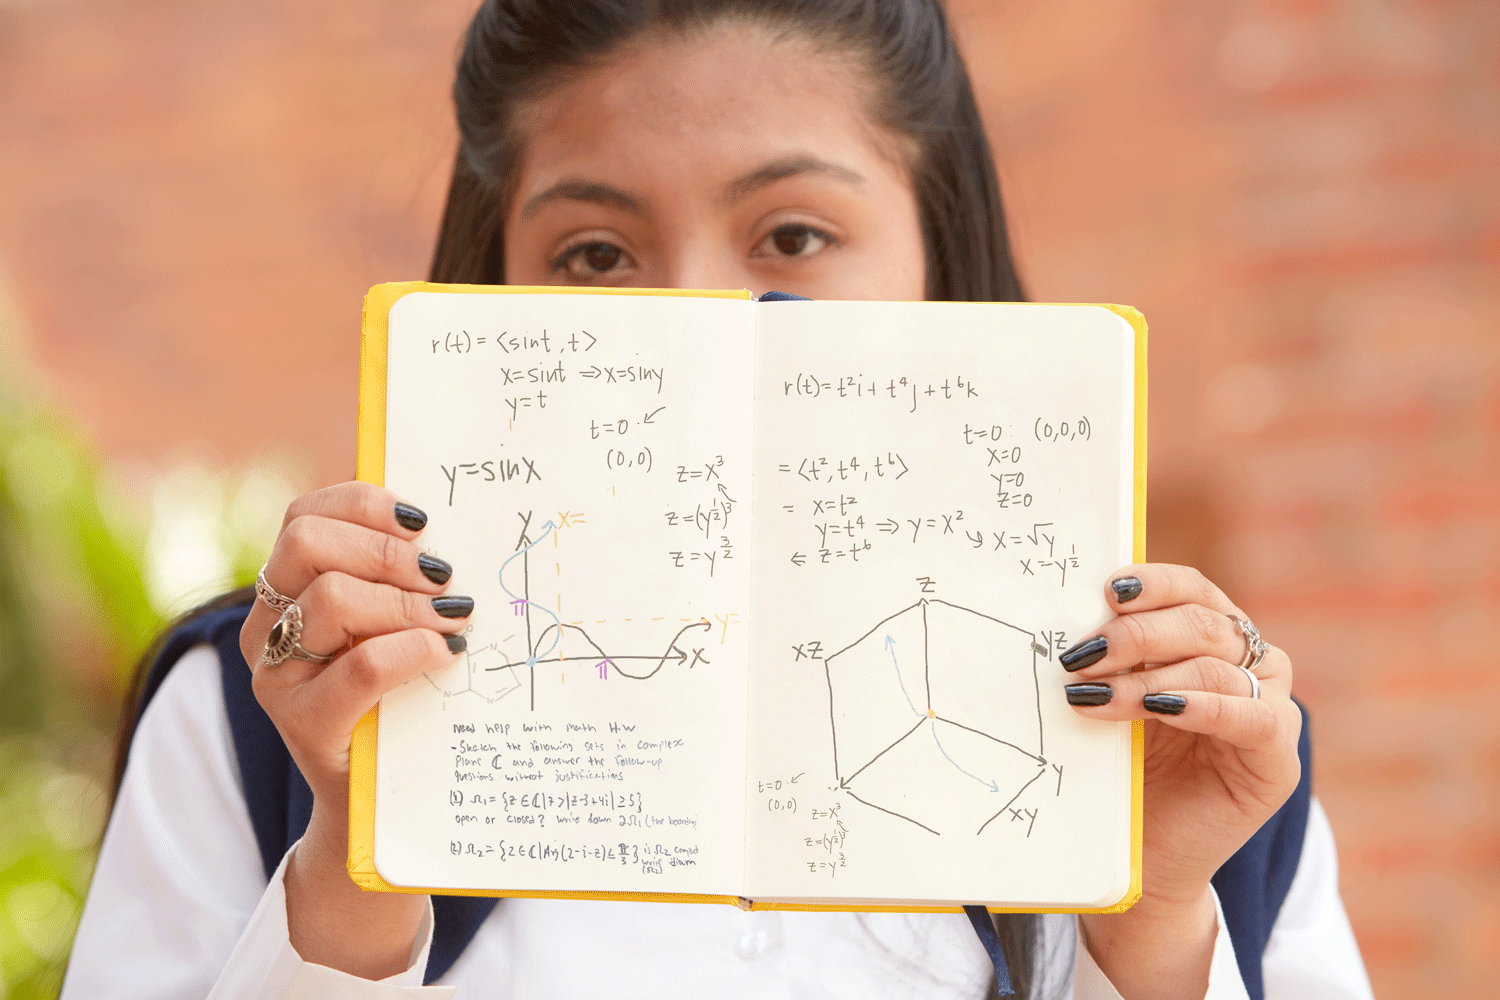 r(t) = ⟨sint, t⟩
x=sint ⇒ x=siny
y=t
t=0
(0,0)
y=sinx
z=x³
z=(y^½)³
z=y^3/2
y
x=
π
y=
x
π
N
N
N
need help with math HW
- Sketch the following sets in complex
plane ℂ and answer the follow-up
questions without justifications
(1) Ω₁ = {z ∈ ℂ | 7 > |z-3+4i| ≥ 5}
open or closed? write down ∂Ω₁ (the boundary
(2) Ω₂ = {z ∈ ℂ | Arg(2-i-z) ≤ π/3} is Ω₂
write down
r(t) = t²i + t⁴j + t⁶k
t=0: (0,0,0)
x=0
y=0
z=0
= ⟨t², t⁴, t⁶⟩
= x=t²
y=t⁴ ⇒ y=x²
⇐ z=t⁶
x=√y
x=y^½
z
xz
yz
y
xy
t=0
(0,0)
z=x³
z=(y^½)³
z=y^3/2